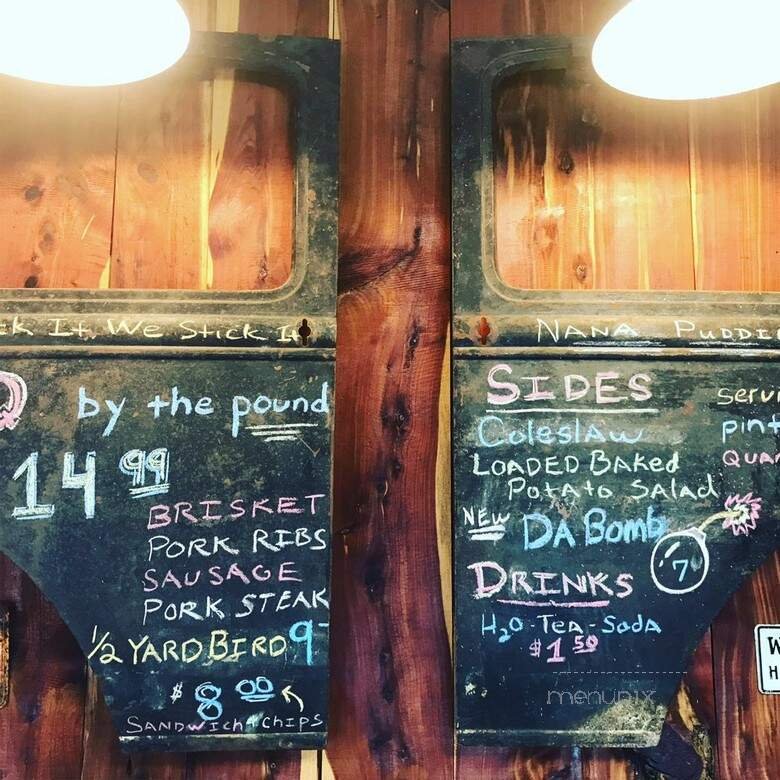 We Stick It
by the pound
14 99
BRISKET
PORK RIBS
SAUSAGE
PORK STEAK
1/2 YARDBIRD 9-
$8 00
SANDWICH + CHIPS
NANA PUDDI
SIDES
Coleslaw
LOADED BAKed
Potato Salad
NEW DA Bomb 7
DRINKS
H2O - Tea - Soda
$1 50
servi
pint
QUAR
W
H
menupix